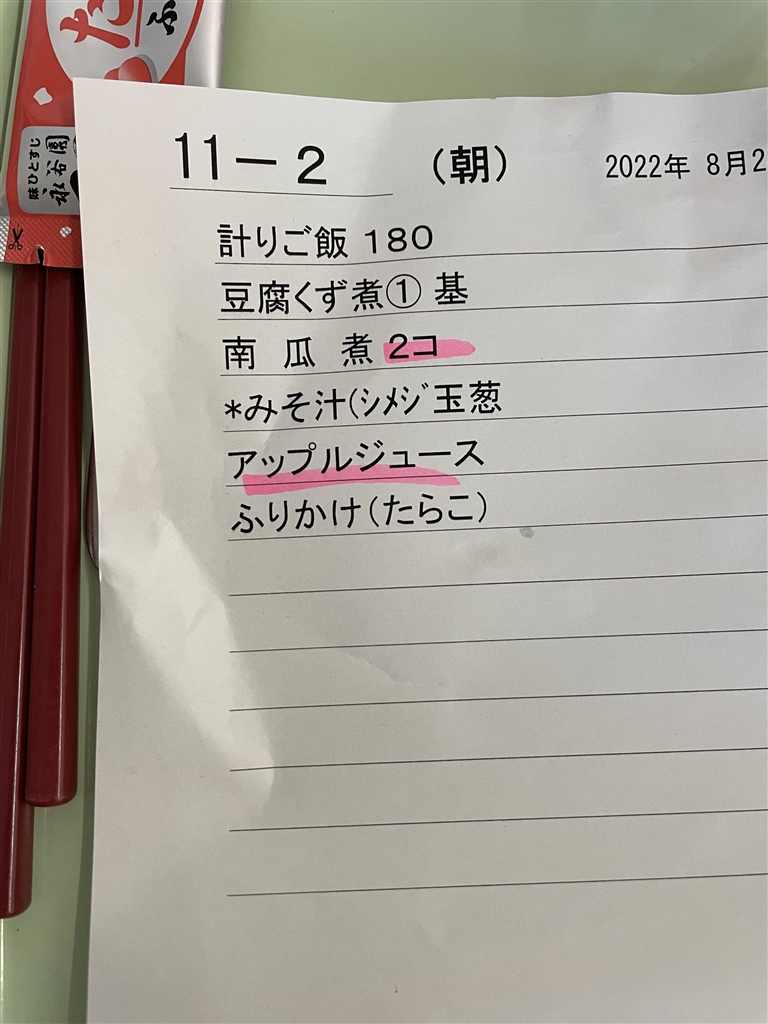 たらこ
ふ
味ひとすじ
永谷園
11－2　（朝）　2022年 8月2
計りご飯 180
豆腐くず煮① 基
南 瓜 煮 2コ
*みそ汁(ｼﾒｼﾞ玉葱
アップルジュース
ふりかけ(たらこ)